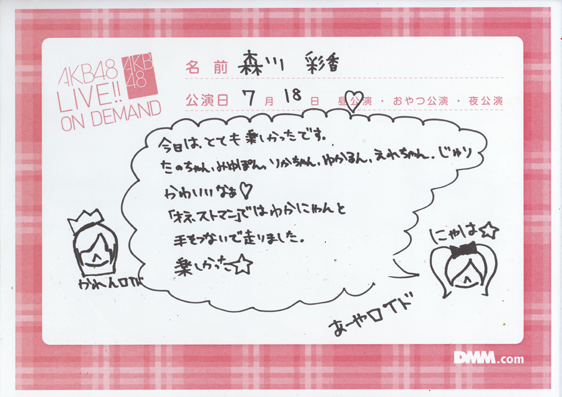 AKB48
LIVE!!
ON DEMAND
AKB
48
名前 森川 彩香
公演日 7月 18日 昼公演・おやつ公演・夜公演
今日は、とても楽しかったです。
たのちゃん、みゆぽん、りかちゃん、ゆかるん、えれちゃん、じゅり
かわいいなぁ♡
「オネストマン」ではわかにゃんと
手をつないで走りました。
楽しかった☆
かれんロイド
にゃは☆
あーやロイド
DMM.com